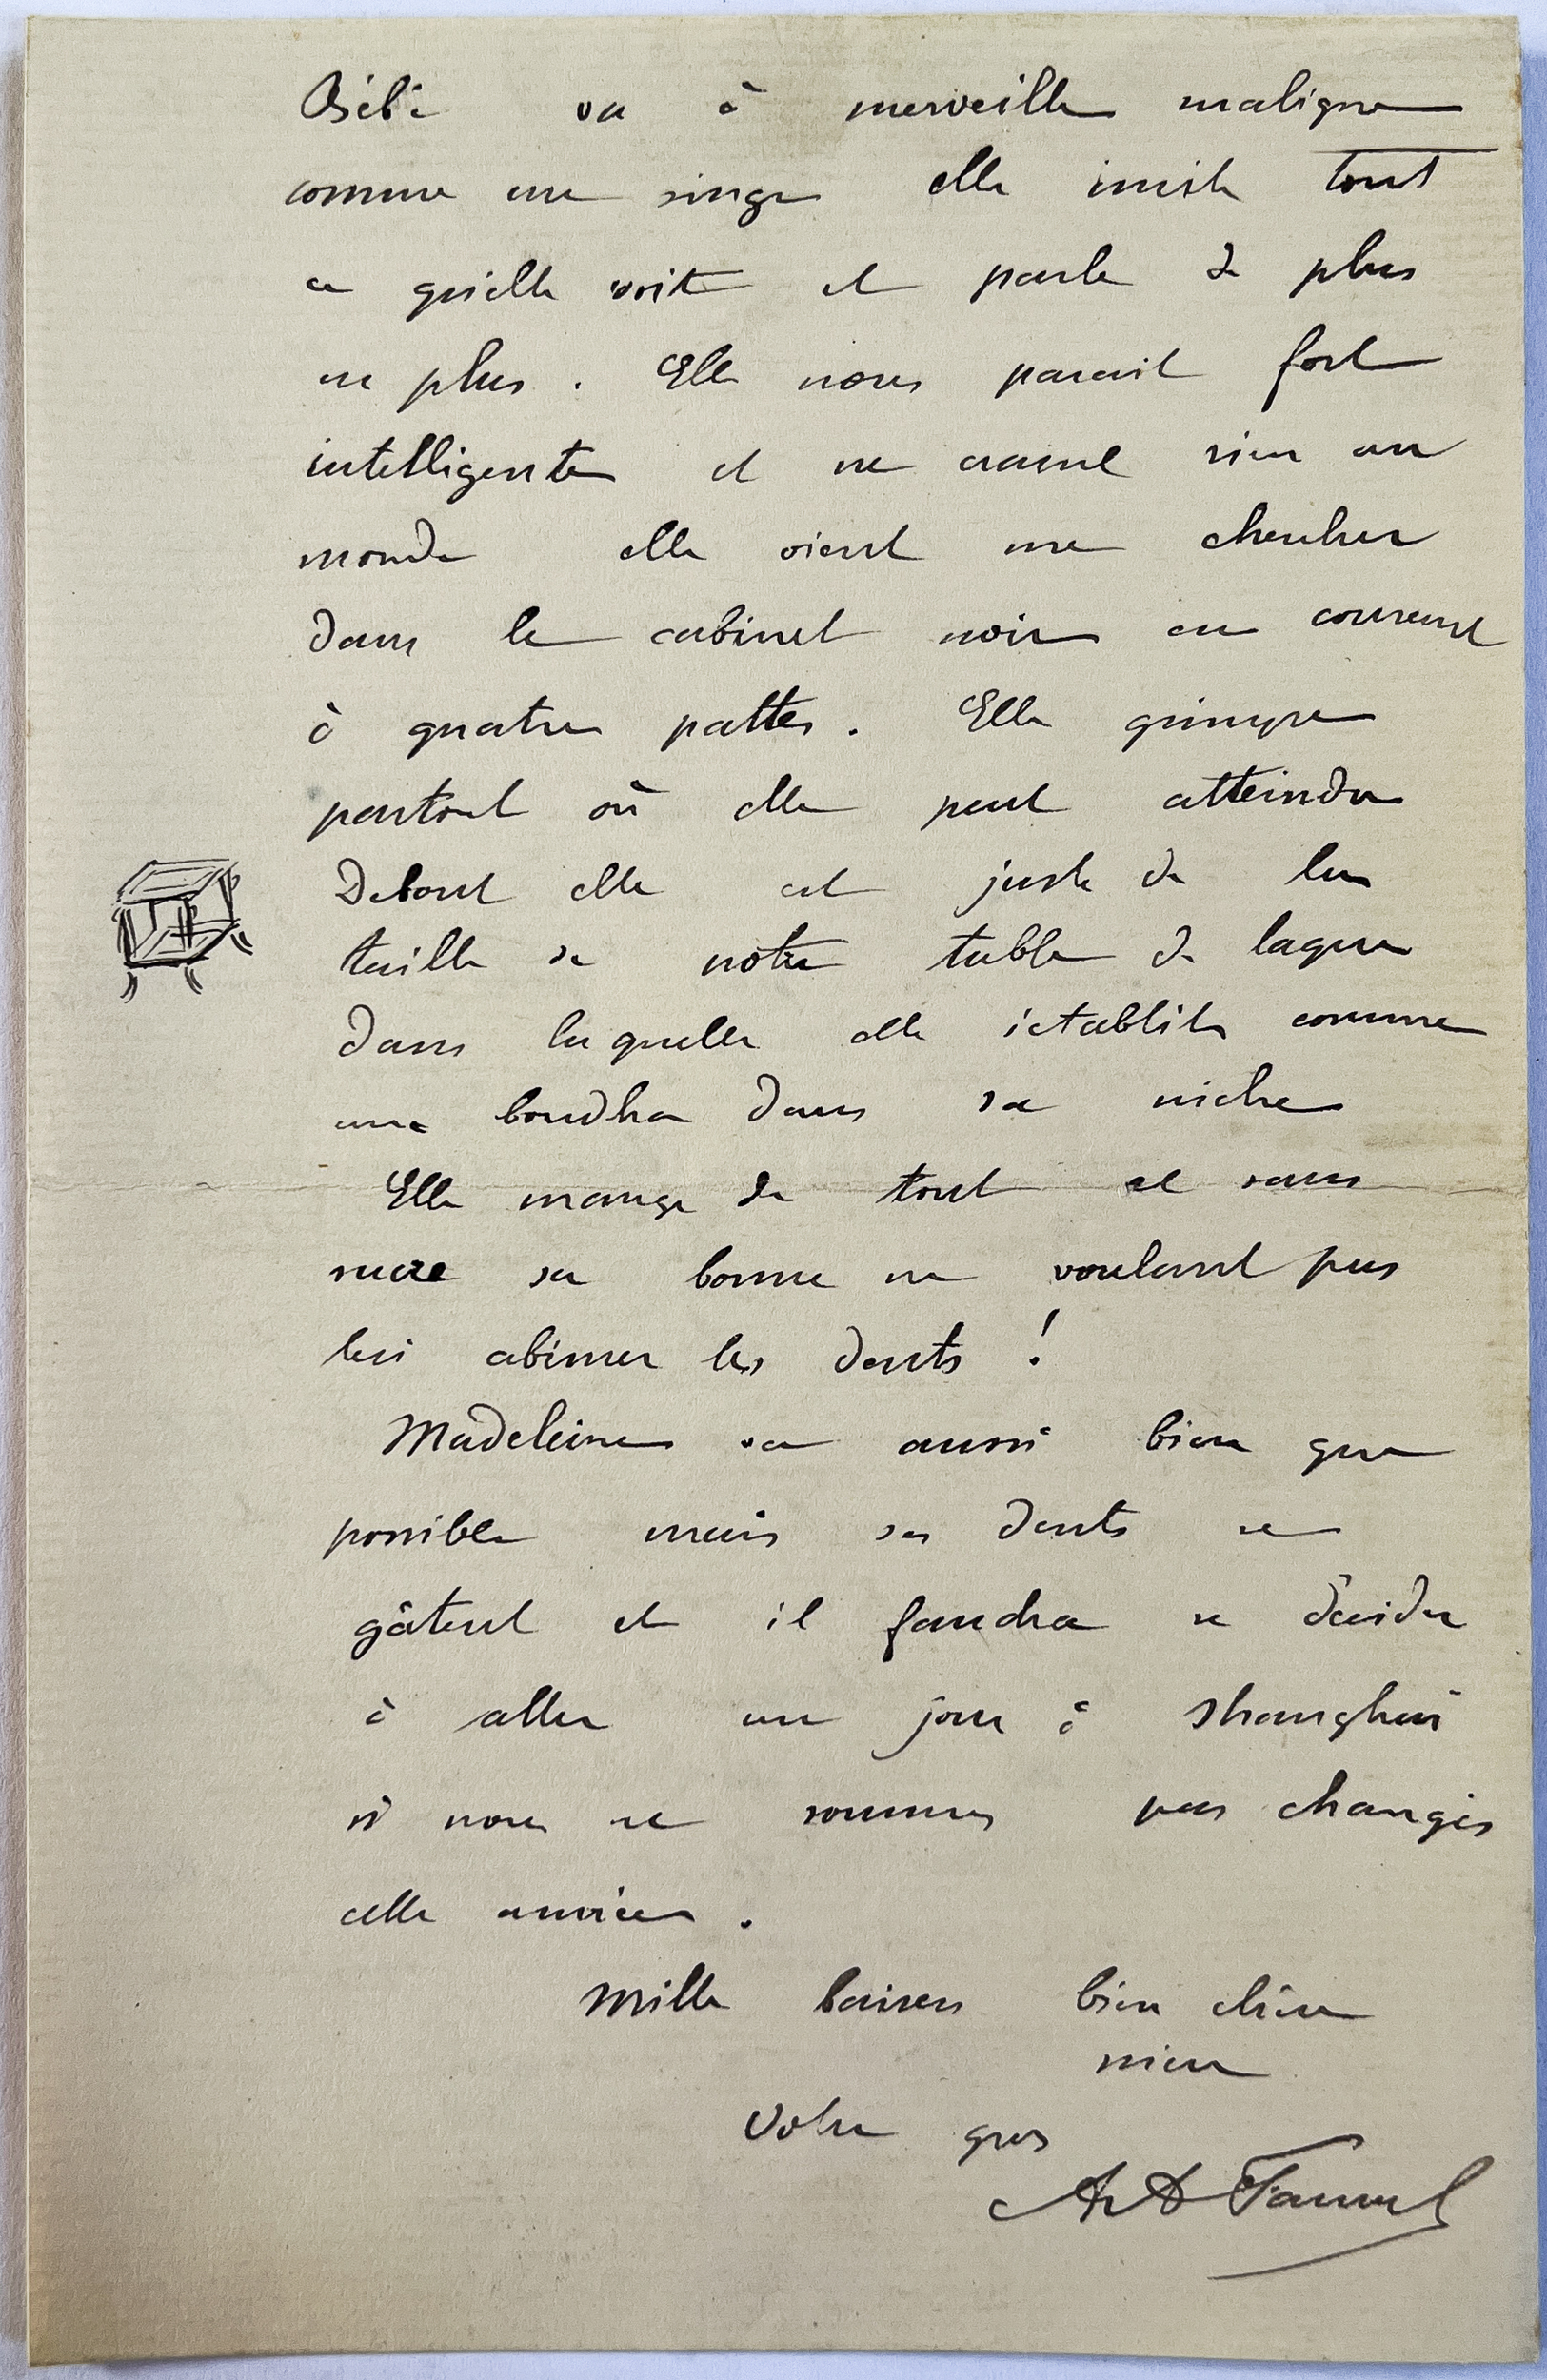 Bébé va à merveille maligne
comme un singe elle imite tout
ce qu'elle voit et parle de plus
en plus. Elle nous parait fort
intelligente et ne craint rien au
monde elle vient me chercher
dans le cabinet noir en courant
à quatre pattes. Elle grimpe
partout où elle peut atteindre
Debout elle est juste de la
taille de notre table de laque
dans laquelle elle s'établit comme
un boudha dans sa niche
Elle mange de tout et sans
sucre sa bonne ne voulant pas
lui abimer les dents !
Madeleine va aussi bien que
possible mais ses dents se
gâtent et il faudra se décider
à aller un jour à Shanghai
si nous ne sommes pas changés
cette année.
Mille baisers bien chère
mère
Votre gros